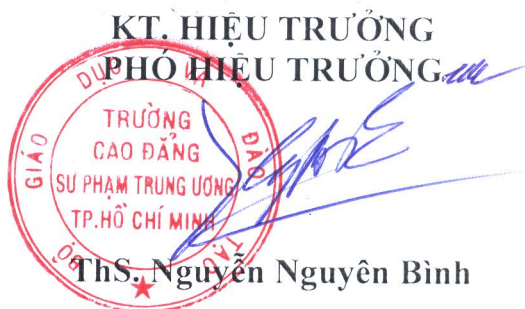 KT. HIỆU TRƯỞNG
PHÓ HIỆU TRƯỞNG
BỘ GIÁO DỤC VÀ ĐÀO TẠO
TRƯỜNG
CAO ĐẲNG
SƯ PHẠM TRUNG ƯƠNG
TP.HỒ CHÍ MINH
ThS. Nguyễn Nguyên Bình